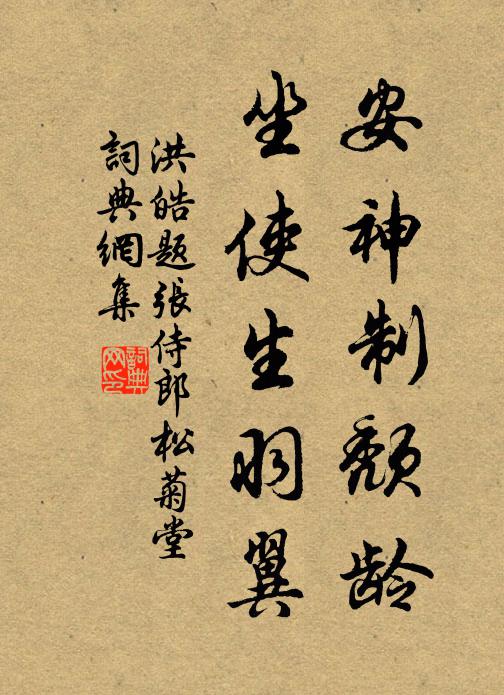 安神制颓龄
坐使生羽翼
洪皓题張侍郎松菊堂
詞典網集
詞典网印